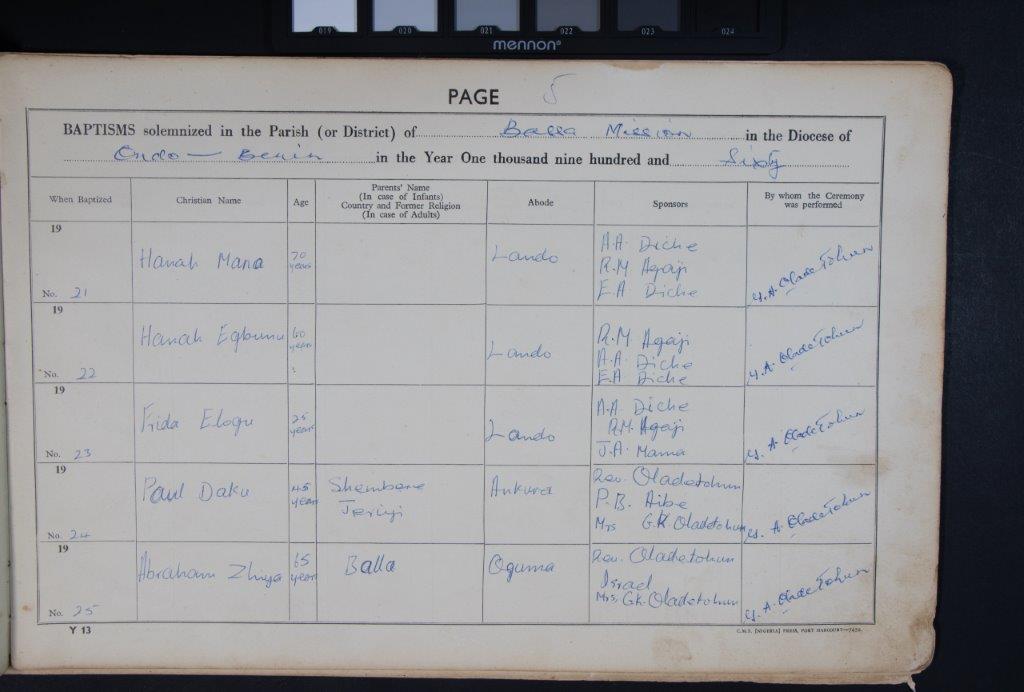 019 020 021 022 023 024
mennon®
PAGE 5
BAPTISMS solemnized in the Parish (or District) of Bassa Mission in the Diocese of
Ondo - Benin in the Year One thousand nine hundred and Sixty
When Baptized Christian Name Age Parents' Name (In case of Infants) Country and Former Religion (In case of Adults) Abode Sponsors By whom the Ceremony was performed
19
Hanah Mana 70 years Lando A.A. Diche
R.M Agaji
E.A Diche
No. 21 Y.A. Oladetohun
19
Hanah Egbunu 60 years Lando R.M. Agaji
A.A. Diche
E.A Diche
No. 22 Y.A. Oladetohun
19
Frida Elogu 25 years Lando A.A. Diche
R.M. Agaji
J.A. Mama
No. 23 Y. A. Oladetohun
19
Paul Daku 45 years Shembere Jeriyi Ankura Rev. Oladetohun
P.B. Aibe
Mrs G.K. Oladetohun
No. 24 Y. A. Oladetohun
19
Abraham Zhiya 65 years Balla Oguma Rev. Oladetohun
Israel
Mrs, G.K. Oladetohun
No. 25 Y. A. Oladetohun
Y 13
C.M.S. (NIGERIA) PRESS, PORT HARCOURT